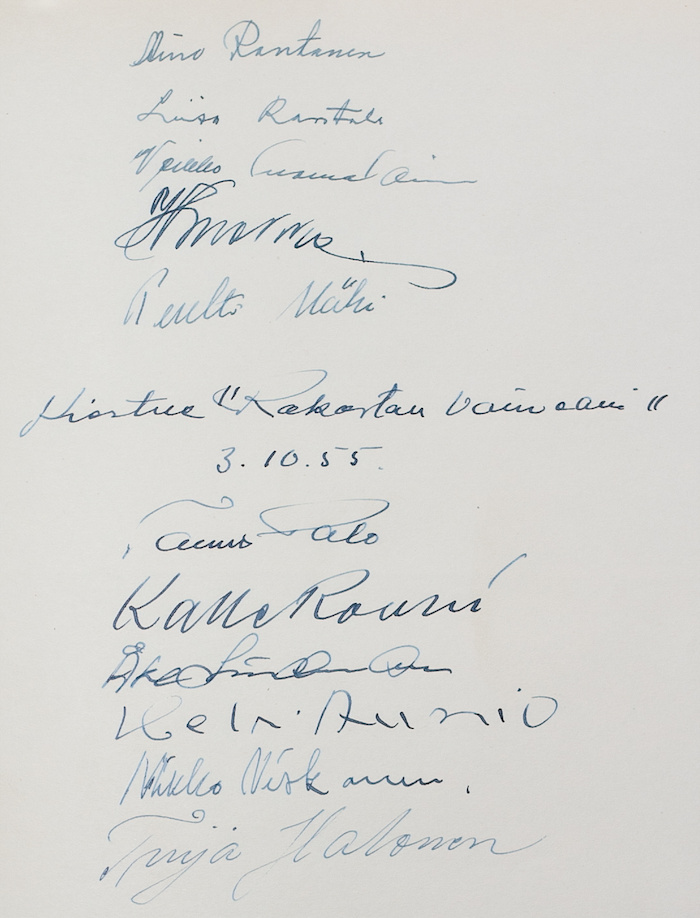 Aino Rantanen
Liisa Rantala
Veikko
Pentti Mäki
Kiertue "Rakastan vaimoani"
3.10.55.
Tauno Palo
Kalle Rouni
Åke Lindman
Heli Aunio
Mikko Niskanen.
Tuija Halonen